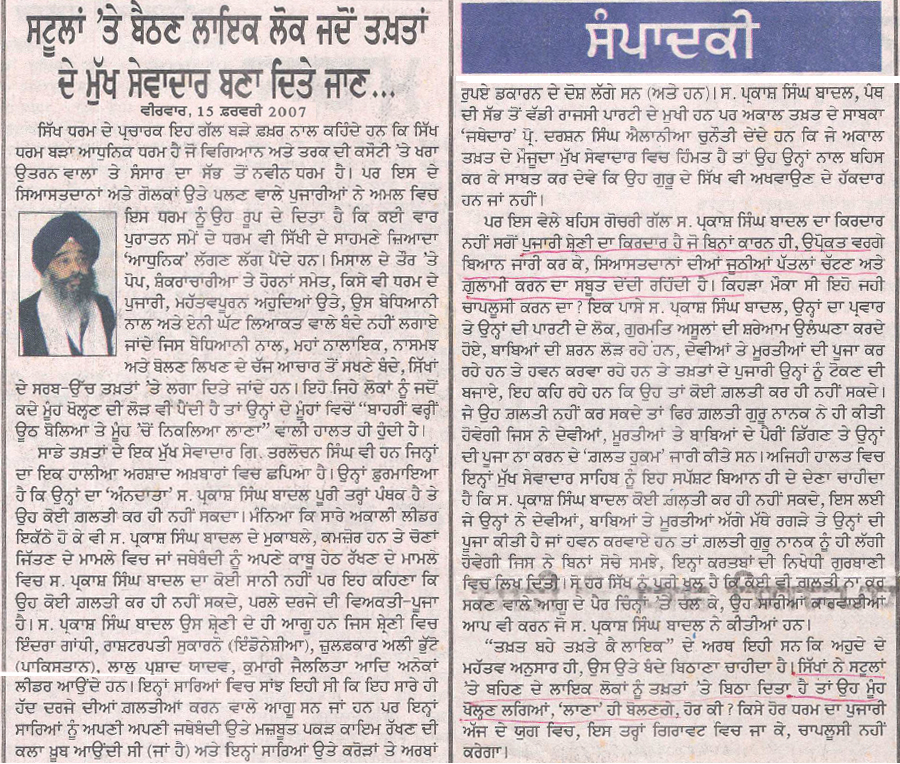 ਸਟੂਲਾਂ 'ਤੇ ਬੈਠਣ ਲਾਇਕ ਲੋਕ ਜਦੋਂ ਤਖ਼ਤਾਂ
ਦੇ ਮੁੱਖ ਸੇਵਾਦਾਰ ਬਣਾ ਦਿਤੇ ਜਾਣ...
ਵੀਰਵਾਰ, 15 ਫ਼ਰਵਰੀ 2007
ਸਿੱਖ ਧਰਮ ਦੇ ਪ੍ਰਚਾਰਕ ਇਹ ਗੱਲ ਬੜੇ ਫ਼ਖ਼ਰ ਨਾਲ ਕਹਿੰਦੇ ਹਨ ਕਿ ਸਿੱਖ
ਧਰਮ ਬੜਾ ਆਧੁਨਿਕ ਧਰਮ ਹੈ ਜੋ ਵਿਗਿਆਨ ਅਤੇ ਤਰਕ ਦੀ ਕਸੌਟੀ 'ਤੇ ਖਰਾ
ਉਤਰਨ ਵਾਲਾ ਤੇ ਸੰਸਾਰ ਦਾ ਸੱਭ ਤੋਂ ਨਵੀਨ ਧਰਮ ਹੈ। ਪਰ ਇਸ ਦੇ
ਸਿਆਸਤਦਾਨਾਂ ਅਤੇ ਗੋਲਕਾਂ ਉਤੇ ਪਲਣ ਵਾਲੇ ਪੁਜਾਰੀਆਂ ਨੇ ਅਮਲ ਵਿਚ
ਇਸ ਧਰਮ ਨੂੰ ਉਹ ਰੂਪ ਦੇ ਦਿਤਾ ਹੈ ਕਿ ਕਈ ਵਾਰ
ਪੁਰਾਤਨ ਸਮੇਂ ਦੇ ਧਰਮ ਵੀ ਸਿੱਖੀ ਦੇ ਸਾਹਮਣੇ ਜ਼ਿਆਦਾ
'ਆਧੁਨਿਕ' ਲੱਗਣ ਲੱਗ ਪੈਂਦੇ ਹਨ। ਮਿਸਾਲ ਦੇ ਤੌਰ 'ਤੇ
ਪੋਪ, ਸ਼ੰਕਰਾਚਾਰੀਆ ਤੇ ਹੋਰਨਾਂ ਸਮੇਤ, ਕਿਸੇ ਵੀ ਧਰਮ ਦੇ
ਪੁਜਾਰੀ, ਮਹੱਤਵਪੂਰਨ ਅਹੁਦਿਆਂ ਉਤੇ, ਉਸ ਬੇਧਿਆਨੀ
ਨਾਲ ਅਤੇ ਏਨੀ ਘੱਟ ਲਿਆਕਤ ਵਾਲੇ ਬੰਦੇ ਨਹੀਂ ਲਗਾਏ
ਜਾਂਦੇ ਜਿਸ ਬੇਧਿਆਨੀ ਨਾਲ, ਮਹਾਂ ਨਾਲਾਇਕ, ਨਾਸਮਝ
ਅਤੇ ਬੋਲਣ ਲਿਖਣ ਦੇ ਚੱਜ ਆਚਾਰ ਤੋਂ ਸਖਣੇ ਬੰਦੇ, ਸਿੱਖਾਂ
ਦੇ ਸਰਬ-ਉੱਚ ਤਖ਼ਤਾਂ 'ਤੇ ਲਗਾ ਦਿਤੇ ਜਾਂਦੇ ਹਨ। ਇਹੋ ਜਿਹੇ ਲੋਕਾਂ ਨੂੰ ਜਦੋਂ
ਕਦੇ ਮੂੰਹ ਖੋਲ੍ਹਣ ਦੀ ਲੋੜ ਵੀ ਪੈਂਦੀ ਹੈ ਤਾਂ ਉਨ੍ਹਾਂ ਦੇ ਮੂੰਹਾਂ ਵਿਚੋਂ "ਬਾਹਰੀਂ ਵਰ੍ਹੀਂ
ਊਠ ਬੋਲਿਆ ਤੇ ਮੂੰਹ 'ਚੋਂ ਨਿਕਲਿਆ ਲਾਣਾ" ਵਾਲੀ ਹਾਲਤ ਹੀ ਹੁੰਦੀ ਹੈ।
ਸਾਡੇ ਤਖ਼ਤਾਂ ਦੇ ਇਕ ਮੁੱਖ ਸੇਵਾਦਾਰ ਗਿ. ਤਰਲੋਚਨ ਸਿੰਘ ਵੀ ਹਨ ਜਿਨ੍ਹਾਂ
ਦਾ ਇਕ ਹਾਲੀਆ ਅਰਸ਼ਾਦ ਅਖ਼ਬਾਰਾਂ ਵਿਚ ਛਪਿਆ ਹੈ। ਉਨ੍ਹਾਂ ਫ਼ੁਰਮਾਇਆ
ਹੈ ਕਿ ਉਨ੍ਹਾਂ ਦਾ 'ਅੰਨਦਾਤਾ' ਸ. ਪ੍ਰਕਾਸ਼ ਸਿੰਘ ਬਾਦਲ ਪੂਰੀ ਤਰ੍ਹਾਂ ਪੰਥਕ ਹੈ ਤੇ
ਉਹ ਕੋਈ ਗ਼ਲਤੀ ਕਰ ਹੀ ਨਹੀਂ ਸਕਦਾ। ਮੰਨਿਆ ਕਿ ਸਾਰੇ ਅਕਾਲੀ ਲੀਡਰ
ਇਕੱਠੇ ਹੋ ਕੇ ਵੀ ਸ. ਪ੍ਰਕਾਸ਼ ਸਿੰਘ ਬਾਦਲ ਦੇ ਮੁਕਾਬਲੇ, ਕਮਜ਼ੋਰ ਹਨ ਤੇ ਚੋਣਾਂ
ਜਿੱਤਣ ਦੇ ਮਾਮਲੇ ਵਿਚ ਜਾਂ ਜਥੇਬੰਦੀ ਨੂੰ ਅਪਣੇ ਕਾਬੂ ਹੇਠ ਰੱਖਣ ਦੇ ਮਾਮਲੇ
ਵਿਚ ਸ. ਪ੍ਰਕਾਸ਼ ਸਿੰਘ ਬਾਦਲ ਦਾ ਕੋਈ ਸਾਨੀ ਨਹੀਂ ਪਰ ਇਹ ਕਹਿਣਾ ਕਿ
ਉਹ ਕੋਈ ਗ਼ਲਤੀ ਕਰ ਹੀ ਨਹੀਂ ਸਕਦੇ, ਪਰਲੇ ਦਰਜੇ ਦੀ ਵਿਅਕਤੀ-ਪੂਜਾ
ਹੈ। ਸ. ਪ੍ਰਕਾਸ਼ ਸਿੰਘ ਬਾਦਲ ਉਸ ਸ਼੍ਰੇਣੀ ਦੇ ਹੀ ਆਗੂ ਹਨ ਜਿਸ ਸ਼੍ਰੇਣੀ ਵਿਚ
ਇੰਦਰਾ ਗਾਂਧੀ, ਰਾਸ਼ਟਰਪਤੀ ਸੁਕਾਰਨੋ (ਇੰਡੋਨੇਸ਼ੀਆ), ਜ਼ੁਲਫ਼ਕਾਰ ਅਲੀ ਭੁੱਟੋ
(ਪਾਕਿਸਤਾਨ), ਲਾਲੂ ਪ੍ਰਸ਼ਾਦ ਯਾਦਵ, ਕੁਮਾਰੀ ਜੈਲਲਿਤਾ ਆਦਿ ਅਨੇਕਾਂ
ਲੀਡਰ ਆਉਂਦੇ ਹਨ। ਇਨ੍ਹਾਂ ਸਾਰਿਆਂ ਵਿਚ ਸਾਂਝ ਇਹੀ ਸੀ ਕਿ ਇਹ ਸਾਰੇ ਹੀ
ਹੱਦ ਦਰਜੇ ਦੀਆਂ ਗ਼ਲਤੀਆਂ ਕਰਨ ਵਾਲੇ ਆਗੂ ਸਨ ਜਾਂ ਹਨ ਪਰ ਇਨ੍ਹਾਂ
ਸਾਰਿਆਂ ਨੂੰ ਅਪਣੀ ਅਪਣੀ ਜਥੇਬੰਦੀ ਉਤੇ ਮਜ਼ਬੂਤ ਪਕੜ ਕਾਇਮ ਰੱਖਣ ਦੀ
ਕਲਾ ਖ਼ੂਬ ਆਉਂਦੀ ਸੀ (ਜਾਂ ਹੈ) ਅਤੇ ਇਨ੍ਹਾਂ ਸਾਰਿਆਂ ਉਤੇ ਕਰੋੜਾਂ ਤੇ ਅਰਬਾਂ
ਸੰਪਾਦਕੀ
ਰੁਪਏ ਡਕਾਰਨ ਦੇ ਦੋਸ਼ ਲੱਗੇ ਸਨ (ਅਤੇ ਹਨ)। ਸ. ਪ੍ਰਕਾਸ਼ ਸਿੰਘ ਬਾਦਲ, ਪੰਥ
ਦੀ ਸੱਭ ਤੋਂ ਵੱਡੀ ਰਾਜਸੀ ਪਾਰਟੀ ਦੇ ਮੁਖੀ ਹਨ ਪਰ ਅਕਾਲ ਤਖ਼ਤ ਦੇ ਸਾਬਕਾ
'ਜਥੇਦਾਰ' ਪ੍ਰੋ. ਦਰਸ਼ਨ ਸਿੰਘ ਐਲਾਨੀਆ ਚੁਨੌਤੀ ਦੇਂਦੇ ਹਨ ਕਿ ਜੇ ਅਕਾਲ
ਤਖ਼ਤ ਦੇ ਮੌਜੂਦਾ ਮੁੱਖ ਸੇਵਾਦਾਰ ਵਿਚ ਹਿੰਮਤ ਹੈ ਤਾਂ ਉਹ ਉਨ੍ਹਾਂ ਨਾਲ ਬਹਿਸ
ਕਰ ਕੇ ਸਾਬਤ ਕਰ ਦੇਵੇ ਕਿ ਉਹ ਗੁਰੂ ਦੇ ਸਿੱਖ ਵੀ ਅਖਵਾਉਣ ਦੇ ਹੱਕਦਾਰ
ਹਨ ਜਾਂ ਨਹੀਂ।
ਪਰ ਇਸ ਵੇਲੇ ਬਹਿਸ ਗੋਚਰੀ ਗੱਲ ਸ. ਪ੍ਰਕਾਸ਼ ਸਿੰਘ ਬਾਦਲ ਦਾ ਕਿਰਦਾਰ
ਨਹੀਂ ਸਗੋਂ ਪੁਜਾਰੀ ਸ਼੍ਰੇਣੀ ਦਾ ਕਿਰਦਾਰ ਹੈ ਜੋ ਬਿਨਾਂ ਕਾਰਨ ਹੀ, ਉਪ੍ਰੋਕਤ ਵਰਗੇ
ਬਿਆਨ ਜਾਰੀ ਕਰ ਕੇ, ਸਿਆਸਤਦਾਨਾਂ ਦੀਆਂ ਜੂਠੀਆਂ ਪੱਤਲਾਂ ਚੱਟਣ ਅਤੇ
ਗ਼ੁਲਾਮੀ ਕਰਨ ਦਾ ਸਬੂਤ ਦੇਂਦੀ ਰਹਿੰਦੀ ਹੈ। ਕਿਹੜਾ ਮੌਕਾ ਸੀ ਇਹੋ ਜਹੀ
ਚਾਪਲੂਸੀ ਕਰਨ ਦਾ? ਇਕ ਪਾਸੇ ਸ. ਪ੍ਰਕਾਸ਼ ਸਿੰਘ ਬਾਦਲ, ਉਨ੍ਹਾਂ ਦਾ ਪ੍ਰਵਾਰ
ਤੇ ਉਨ੍ਹਾਂ ਦੀ ਪਾਰਟੀ ਦੇ ਲੋਕ, ਗੁਰਮਤਿ ਅਸੂਲਾਂ ਦੀ ਸ਼ਰੇਆਮ ਉਲੰਘਣਾ ਕਰਦੇ
ਹੋਏ, ਬਾਬਿਆਂ ਦੀ ਸ਼ਰਨ ਲੋੜ ਰਹੇ ਹਨ, ਦੇਵੀਆਂ ਤੇ ਮੂਰਤੀਆਂ ਦੀ ਪੂਜਾ ਕਰ
ਰਹੇ ਹਨ ਤੇ ਹਵਨ ਕਰਵਾ ਰਹੇ ਹਨ ਤੇ ਤਖ਼ਤਾਂ ਦੇ ਪੁਜਾਰੀ ਉਨ੍ਹਾਂ ਨੂੰ ਟੋਕਣ ਦੀ
ਬਜਾਏ, ਇਹ ਕਹਿ ਰਹੇ ਹਨ ਕਿ ਉਹ ਤਾਂ ਕੋਈ ਗ਼ਲਤੀ ਕਰ ਹੀ ਨਹੀਂ ਸਕਦੇ।
ਜੇ ਉਹ ਗ਼ਲਤੀ ਨਹੀਂ ਕਰ ਸਕਦੇ ਤਾਂ ਫਿਰ ਗ਼ਲਤੀ ਗੁਰੂ ਨਾਨਕ ਨੇ ਹੀ ਕੀਤੀ
ਹੋਵੇਗੀ ਜਿਸ ਨੇ ਦੇਵੀਆਂ, ਮੂਰਤੀਆਂ ਤੇ ਬਾਬਿਆਂ ਦੇ ਪੈਰੀਂ ਡਿੱਗਣ ਤੇ ਉਨ੍ਹਾਂ
ਦੀ ਪੂਜਾ ਨਾ ਕਰਨ ਦੇ 'ਗ਼ਲਤ ਹੁਕਮ' ਜਾਰੀ ਕੀਤੇ ਸਨ। ਅਜਿਹੀ ਹਾਲਤ ਵਿਚ
ਇਨ੍ਹਾਂ ਮੁੱਖ ਸੇਵਾਦਾਰ ਸਾਹਿਬ ਨੂੰ ਇਹ ਸਪੱਸ਼ਟ ਬਿਆਨ ਹੀ ਦੇ ਦੇਣਾ ਚਾਹੀਦਾ
ਹੈ ਕਿ ਸ. ਪ੍ਰਕਾਸ਼ ਸਿੰਘ ਬਾਦਲ ਕੋਈ ਗ਼ਲਤੀ ਕਰ ਹੀ ਨਹੀਂ ਸਕਦੇ, ਇਸ ਲਈ
ਜੇ ਉਨ੍ਹਾਂ ਨੇ ਦੇਵੀਆਂ, ਬਾਬਿਆਂ ਤੇ ਮੂਰਤੀਆਂ ਅੱਗੇ ਮੱਥੇ ਰਗੜੇ ਤੇ ਉਨ੍ਹਾਂ ਦੀ
ਪੂਜਾ ਕੀਤੀ ਹੈ ਜਾਂ ਹਵਨ ਕਰਵਾਏ ਹਨ ਤਾਂ ਗ਼ਲਤੀ ਗੁਰੂ ਨਾਨਕ ਨੂੰ ਹੀ ਲੱਗੀ
ਹੋਵੇਗੀ ਜਿਸ ਨੇ ਬਿਨਾਂ ਸੋਚੇ ਸਮਝੇ, ਇਨ੍ਹਾਂ ਕਰਤਬਾਂ ਦੀ ਨਿਖੇਧੀ ਗੁਰਬਾਣੀ
ਵਿਚ ਲਿਖ ਦਿਤੀ। ਸੋ ਹਰ ਸਿੱਖ ਨੂੰ ਪੂਰੀ ਖੁਲ੍ਹ ਹੈ ਕਿ ਕੋਈ ਵੀ ਗ਼ਲਤੀ ਨਾ ਕਰ
ਸਕਣ ਵਾਲੇ ਆਗੂ ਦੇ ਪੈਰ ਚਿੰਨ੍ਹਾਂ 'ਤੇ ਚਲ ਕੇ, ਉਹ ਸਾਰੀਆਂ ਕਾਰਵਾਈਆਂ
ਆਪ ਵੀ ਕਰਨ ਜੋ ਸ. ਪ੍ਰਕਾਸ਼ ਸਿੰਘ ਬਾਦਲ ਨੇ ਕੀਤੀਆਂ ਹਨ।
"ਤਖ਼ਤ ਬਹੇ ਤਖ਼ਤੇ ਕੈ ਲਾਇਕ" ਦੇ ਅਰਥ ਇਹੀ ਸਨ ਕਿ ਅਹੁਦੇ ਦੇ
ਮਹੱਤਵ ਅਨੁਸਾਰ ਹੀ, ਉਸ ਉਤੇ ਬੰਦੇ ਬਿਠਾਣਾ ਚਾਹੀਦਾ ਹੈ। ਸਿੱਖਾਂ ਨੇ ਸਟੂਲਾਂ
'ਤੇ ਬਹਿਣ ਦੇ ਲਾਇਕ ਲੋਕਾਂ ਨੂੰ ਤਖ਼ਤਾਂ 'ਤੇ ਬਿਠਾ ਦਿਤਾ ਹੈ ਤਾਂ ਉਹ ਮੂੰਹ
ਖੋਲ੍ਹਣ ਲਗਿਆਂ, 'ਲਾਣਾ' ਹੀ ਬੋਲਣਗੇ, ਹੋਰ ਕੀ? ਕਿਸੇ ਹੋਰ ਧਰਮ ਦਾ ਪੁਜਾਰੀ
ਅੱਜ ਦੇ ਯੁਗ ਵਿਚ, ਇਸ ਤਰ੍ਹਾਂ ਗਿਰਾਵਟ ਵਿਚ ਜਾ ਕੇ, ਚਾਪਲੂਸੀ ਨਹੀਂ
ਕਰੇਗਾ।